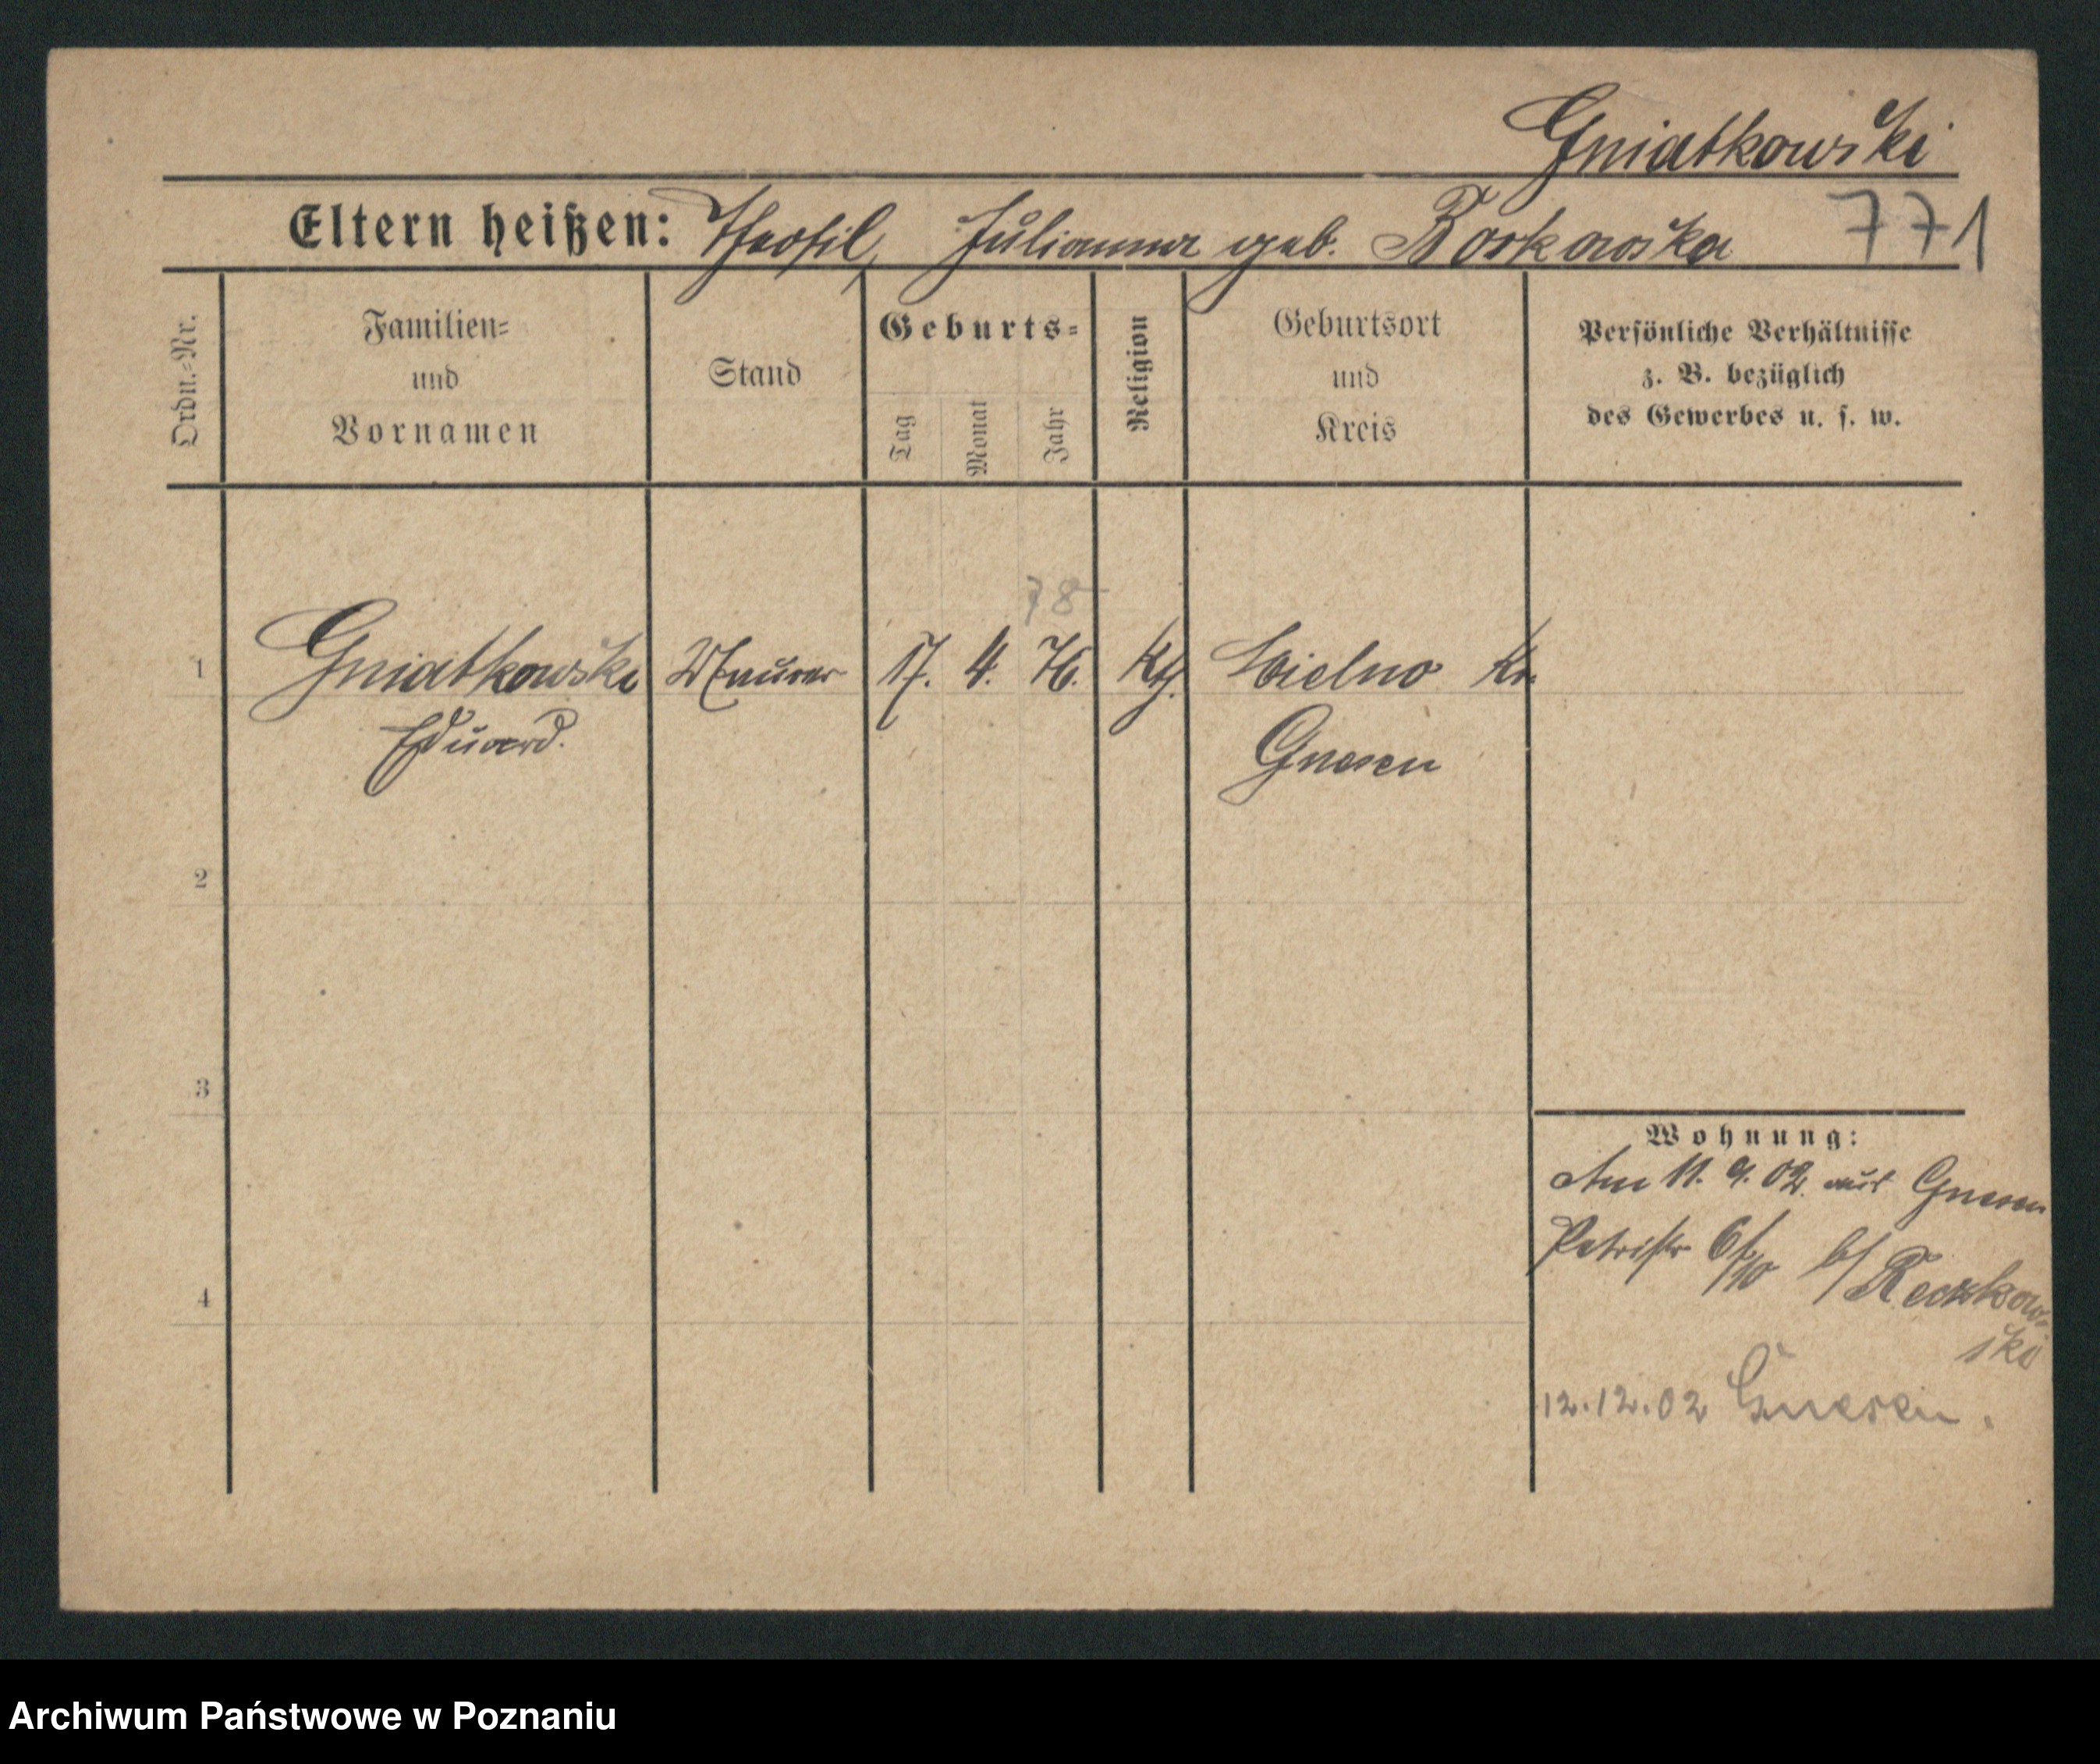 Gniatkowski
Eltern heißen: Theofil, Julianna geb. Borkowska 771
Ordn.-Nr.
Familien-
und
Vornamen
Stand
Geburts-
Tag
Monat
Jahr
Religion
Geburtsort
und
Kreis
Persönliche Verhältnisse
z. B. bezüglich
des Gewerbes u. s. w.
78
1 Gniatkowski Maurer 17. 4. 76. kth. Kr.
Eduard. Gnesen
2
3
4
Wohnung:
Am 11. 9. 02. aus Gnesen
Petristr 6 b/ Reczkow-
ski
12.12.02 Gnesen.
Archiwum Państwowe w Poznaniu